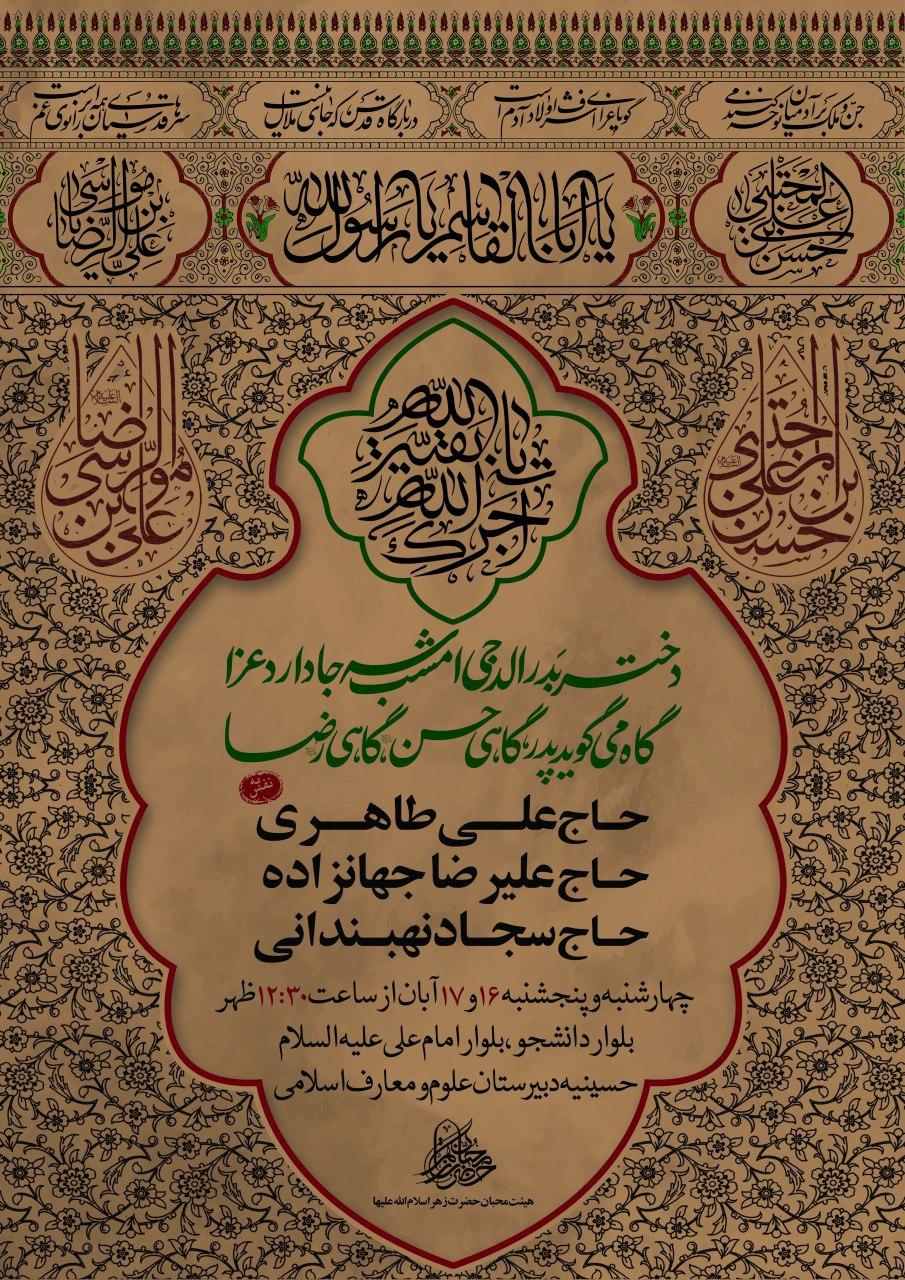 جن و ملک بر آدمیان نوحه می‌کنند
گویا عزای اشرف اولاد آدم است
در بارگاه قدس که جای ملال نیست
سرهای قدسیان همه بر زانوی غم است
حسن بن علی المجتبی
یا اباالقاسم یا رسول الله
علی بن موسی الرضا
حسن بن علی
علی بن موسی الرضا
یا بقیة الله
آجرک الله
دختر بدرالدجی امشب سه جا دارد عزا
گاه می گوید پدر گاهی حسن گاهی رضا
حاج علی طاهری
حاج علیرضا جهانزاده
حاج سجاد نهبندانی
چهارشنبه و پنجشنبه ۱۶ و ۱۷ آبان از ساعت ۱۲:۳۰ ظهر
بلوار دانشجو، بلوار امام علی علیه السلام
حسینیه دبیرستان علوم و معارف اسلامی
هیئت محبان حضرت زهرا سلام الله علیها